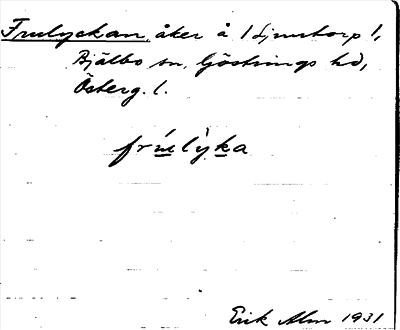 Frulyckan, åker å /Ljunstorp/,
Bjälbo sn, Göstrings hd,
Österg. l.
frúlỳka
Erik Alm 1931